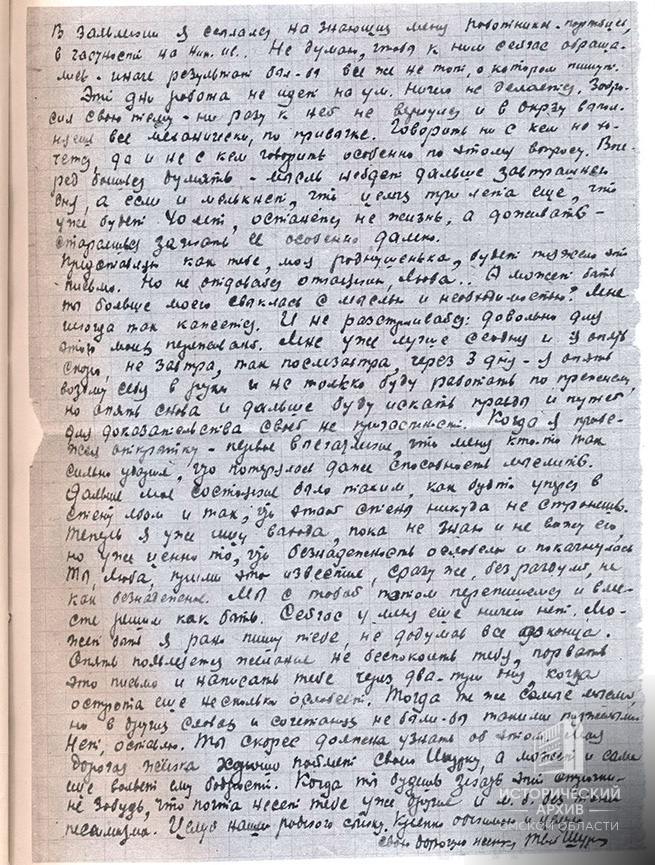 В заявлении я сослался на знающих меня работников-партийцев,
в частности на Ник. Ив.. Не думаю, чтобы к ним сейчас обраща-
лись - иначе результат был-бы все же не тот, о котором пишут.
Эти дни работа не идет на ум. Ничего не делается. Забро-
сил свою тему - ни разу к ней не вернулся и в окрзу выпол-
няешь все механически, по привычке. Говорить ни с кем не хо-
чется, да и не с кем говорить особенно по этому вопросу. Впе-
ред боишься думать - мысль не идет дальше завтрашнего
дня, а если и мелькнет, что целых три лета еще, что
уже будет 40 лет, останется не жизнь, а доживать -
стараешься загнать ее особенно далеко.
Представляю как тебе, моя роднушенька, будет тяжело это
письмо. Но не отдавайся отчаянию, Люба.. А может быть
ты больше моего свыклась с мыслью и необходимостью? Мне
иногда так кажется. И не расстраивайся: довольно для
этого моих переживаний. Мне уже лучше сегодня и я опять
скоро, не завтра, так послезавтра, через 3 дня - я опять
возьму себя в руки и не только буду работать по прежнему,
но опять снова и дальше буду искать правды и путей
для доказательства своей не причастности. Когда я прочи-
тал открытку - первое впечатление, что меня кто-то так
сильно ударил, что потерялась даже способность мыслить.
Дальше мое состояние было таким, как будто уперся в
стену лбом и так, что этой стены никуда не стронешь.
Теперь я уже ищу выхода, пока не знаю и не вижу его,
но уже ценно то, что безнадежность ослабела и покачнулась
Ты, Люба, прими это известие, сразу же, без раздумий, не
как безнадежное. Мы с тобой потом перепишемся и вме-
сте решим как быть. Сейчас у меня еще ничего нет. Мо-
жет быть я рано пишу тебе, не додумав все до конца.
Опять появляется желание не беспокоить тебя, порвать
это письмо и написать тебе через два-три дня, когда
острота еще несколько ослабеет. Тогда те же самые мысли,
но в других словах и сочетаниях не были-бы такими тяжелыми
Нет, оставлю. Ты скорее должна узнать об этом. Моя
дорогая женка хорошо поймет своего Шурку, а может и сама
еще вольет ему бодрости. Когда ты будешь читать эти строчки-
не забудь, что почта несет тебе уже другие и м. б. без тени
пессимизма. Целую нашу родного сынку. Крепко обнимаю и целую
свою дорогую женку Твой Шурка
ИСТОРИЧЕСКИЙ
АРХИВ
ОМСКОЙ ОБЛАСТИ